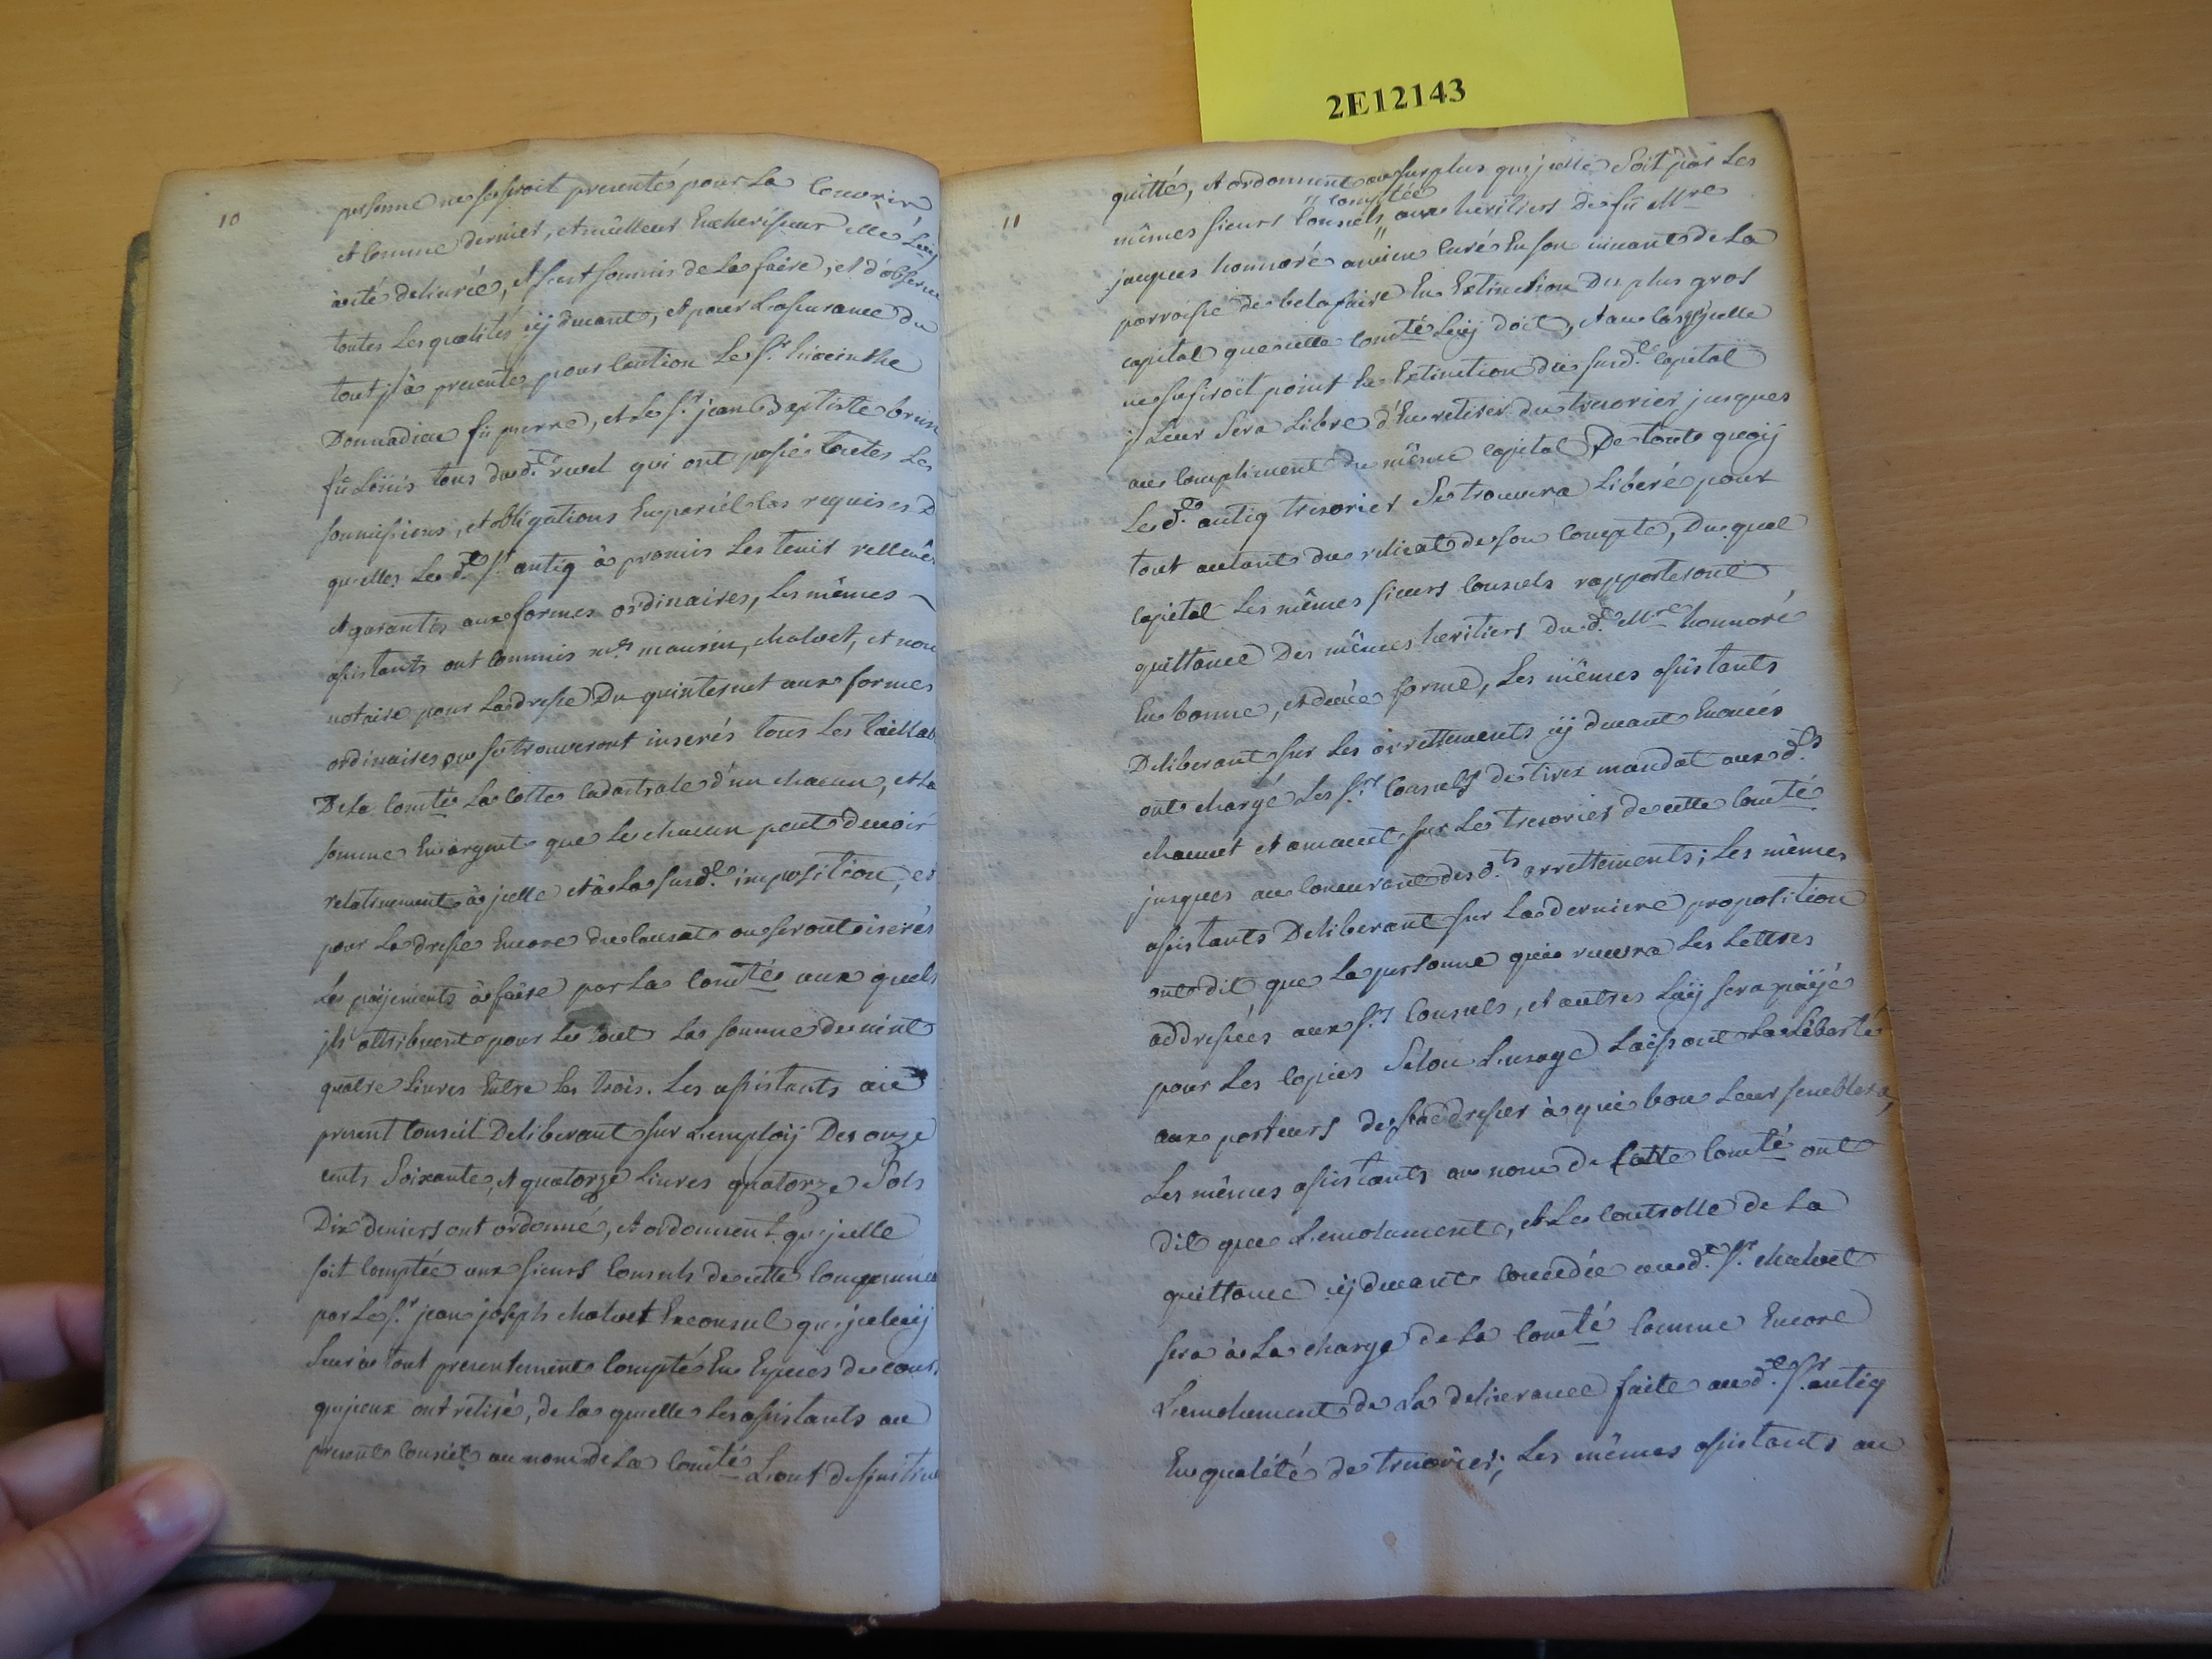 2E12143
10
personne ne se seroit presenté pour La Couvrir
et Comme dernier, et meilleur Encherisseur elle Luij
à eté delivrée, et s'est soumis de La faire, et d'observer
toutes Les qualités cij devant, et pour L'assurance du
tout il à presenté pour Caution Le Sr. hiacinthe
Donnadieu fû pierre, et Le Sr. jean Baptiste brun
fû Loüis tous dud. ruel qui ont passé toutes Les
soumissions, et obligations En pareil Cas requises
quelles Le d. Sr. antiq à promis Les tenir relleués
et garantis aux formes ordinaires, Les mêmes
assistants ont Commis mes. maurin, chalvet, et nou
notaire pour La dresse Du quinternet aux formes
ordinaires ou se trouveront inserés tous Les taillab
De La Comté La Cotte Cadastrale d'un chacun, et La
somme En argent que Le chacun peut devoir
relativement à jcelle et à La susd. imposition, et
pour La dresse Encore du Causat ou seront inserés
Les paijements à faire par La Comté aux quels
jls attribuent pour Le tout La somme de vint
quatre Livres Entre Les trois. Les assistants au
present Conseil Deliberant sur L'emploij Des onze
cents Soixante, et quatorze Livres quatorze Sols
Dix deniers ont ordonné, et ordonnent qu'jcelle
soit Comptée aux sieurs Consuls de cette Compagnie
par Le Sr. jean joseph chalvet Exconsul qu'jceluij
Leur à tout presentement Compté En Especes de cours
qu'jceux ont retiré, de La quelle Les assistants au
present Conseil au nom de La Comté L'ont deffinitive
11
quitté, et ordonnent au surplus qu'jcelle Soit par Les
comptée
mêmes sieurs Consuls aux heritiers de fû Mre
jacques honnoré ancien Curé En son vivant de La
parroisse de belafaire En Extinction Du plus gros
capital que cette Comté Luij doit, et au Cas qu'jcelle
ne suffiroit point En Extinction du susd. Capital
jl Leur Sera Libre d'En retirer du tresorier jusques
au Compliment du même Capital De tout quoij
Le d. antiq tresorier Se trouvera Liberé pour
tout autant du relicat de son Compte, Du quel
Capital Les mêmes sieurs Consuls rapporteront
quittance Des mêmes heritiers du d. Mre honnoré
En bonne, et deüe forme, Les mêmes assistants
Deliberant sur Les arrettements cij devant Enoncés
ont chargé Les Srs Consuls de tirer mandat aux ds.
chaumet et amant sur Le tresorier de cette Comté
jusques au Concurant des d.ts arrettements; Les mêmes
assistants Deliberant sur La derniere proposition
ont dit que La personne qui recevra Les Lettres
addressées aux Srs Consuls, et autres Luij sera païjé
pour Les Copies Selon L'usage Laissant La Liberté
aux porteurs de s'addresser à qui bon Leur semblera,
Les mêmes assistants au nom de Cette Comté ont
dit que L'emolument, et Le Controlle de La
quittance cij devant Concedée au d. Sr. chalvet
sera à La charge de La Comté Comme Encore
L'emolument de La delivrance faite au d. Sr. antiq
En qualité de tresorier; Les mêmes assistants au